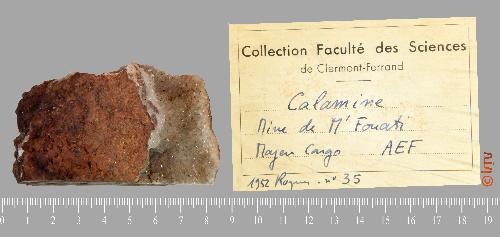 Collection Faculté des Sciences
de Clermont-Ferrand
Calamine
Mine de M'Fouati
Moyen Congo AEF
1952 n° 35
0 1 2 3 4 5 6 7 8 9 10 11 12 13 14 15 16 17 18 19